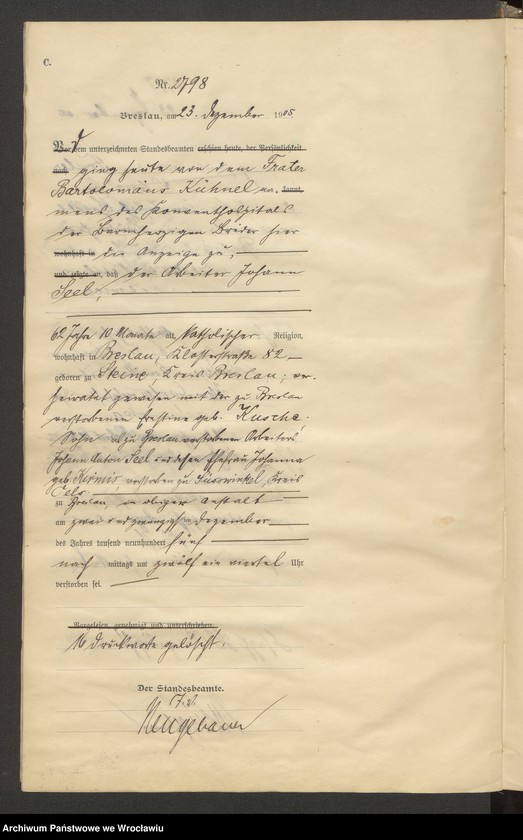 C.
Nr. 2798
Breslau, am 23. Dezember 1905
Vor dem unterzeichneten Standesbeamten erschien heute, der Persönlichkeit
nach ging heute von dem Frater
Bartolomäus Kühnel kannt,
mens des Konventhospitals
der Barmherzigen Brüder hier
wohnhaft in die Anzeige zu,
und zeigte an, daß der Arbeiter Johann
Seel,
62 Jahre 10 Monate alt, katholischer Religion,
wohnhaft in Breslau, Klosterstraße 82
geboren zu Kreis Breslau; ver-
heiratet gewesen mit der zu Breslau
verstorbenen geb. Kusche.
Sohn des zu Breslau verstorbenen Arbeiters
Johann Anton Seel und dessen Ehefrau Johanna
geb. verstorben zu Kreis
Oels
zu Breslau, in obiger Anstalt
am zwei und zwanzigsten Dezember
des Jahres tausend neunhundert fünf
nach mittags um zwölf ein viertel Uhr
verstorben sei.
Vorgelesen, genehmigt und unterschrieben.
16 Druckworte gelöscht.
Der Standesbeamte.
J. V.
Neugebauer
Archiwum Państwowe we Wrocławiu